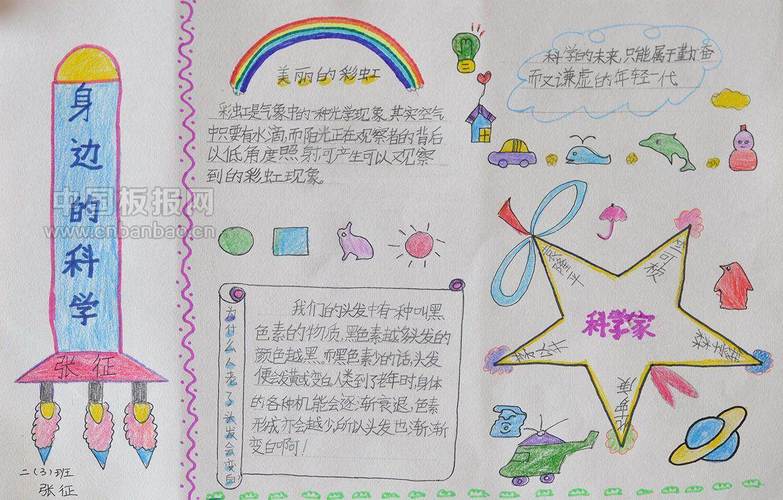 身边的科学
张征
二(3)班
张征
中国板报网
www.cnbanbao.cn
美丽的彩虹
彩虹是气象中的一种光学现象,其实空气
中只要有水滴,而阳光正在观察者的背后
以低角度照射可产生可以观察
到的彩虹现象。
为什么人老了头发会变白
我们的头发中有一种叫黑
色素的物质,黑色素越多头发的
颜色越黑。而黑色素少的话,头发
便会发黄或变白人类到了老年时,身体
的各种机能会逐渐衰退,色素
形成亦会越少,所以头发也渐渐
变白啊!
科学的未来,只能属于勤奋
而又谦虚的年轻一代
科学家
袁隆平